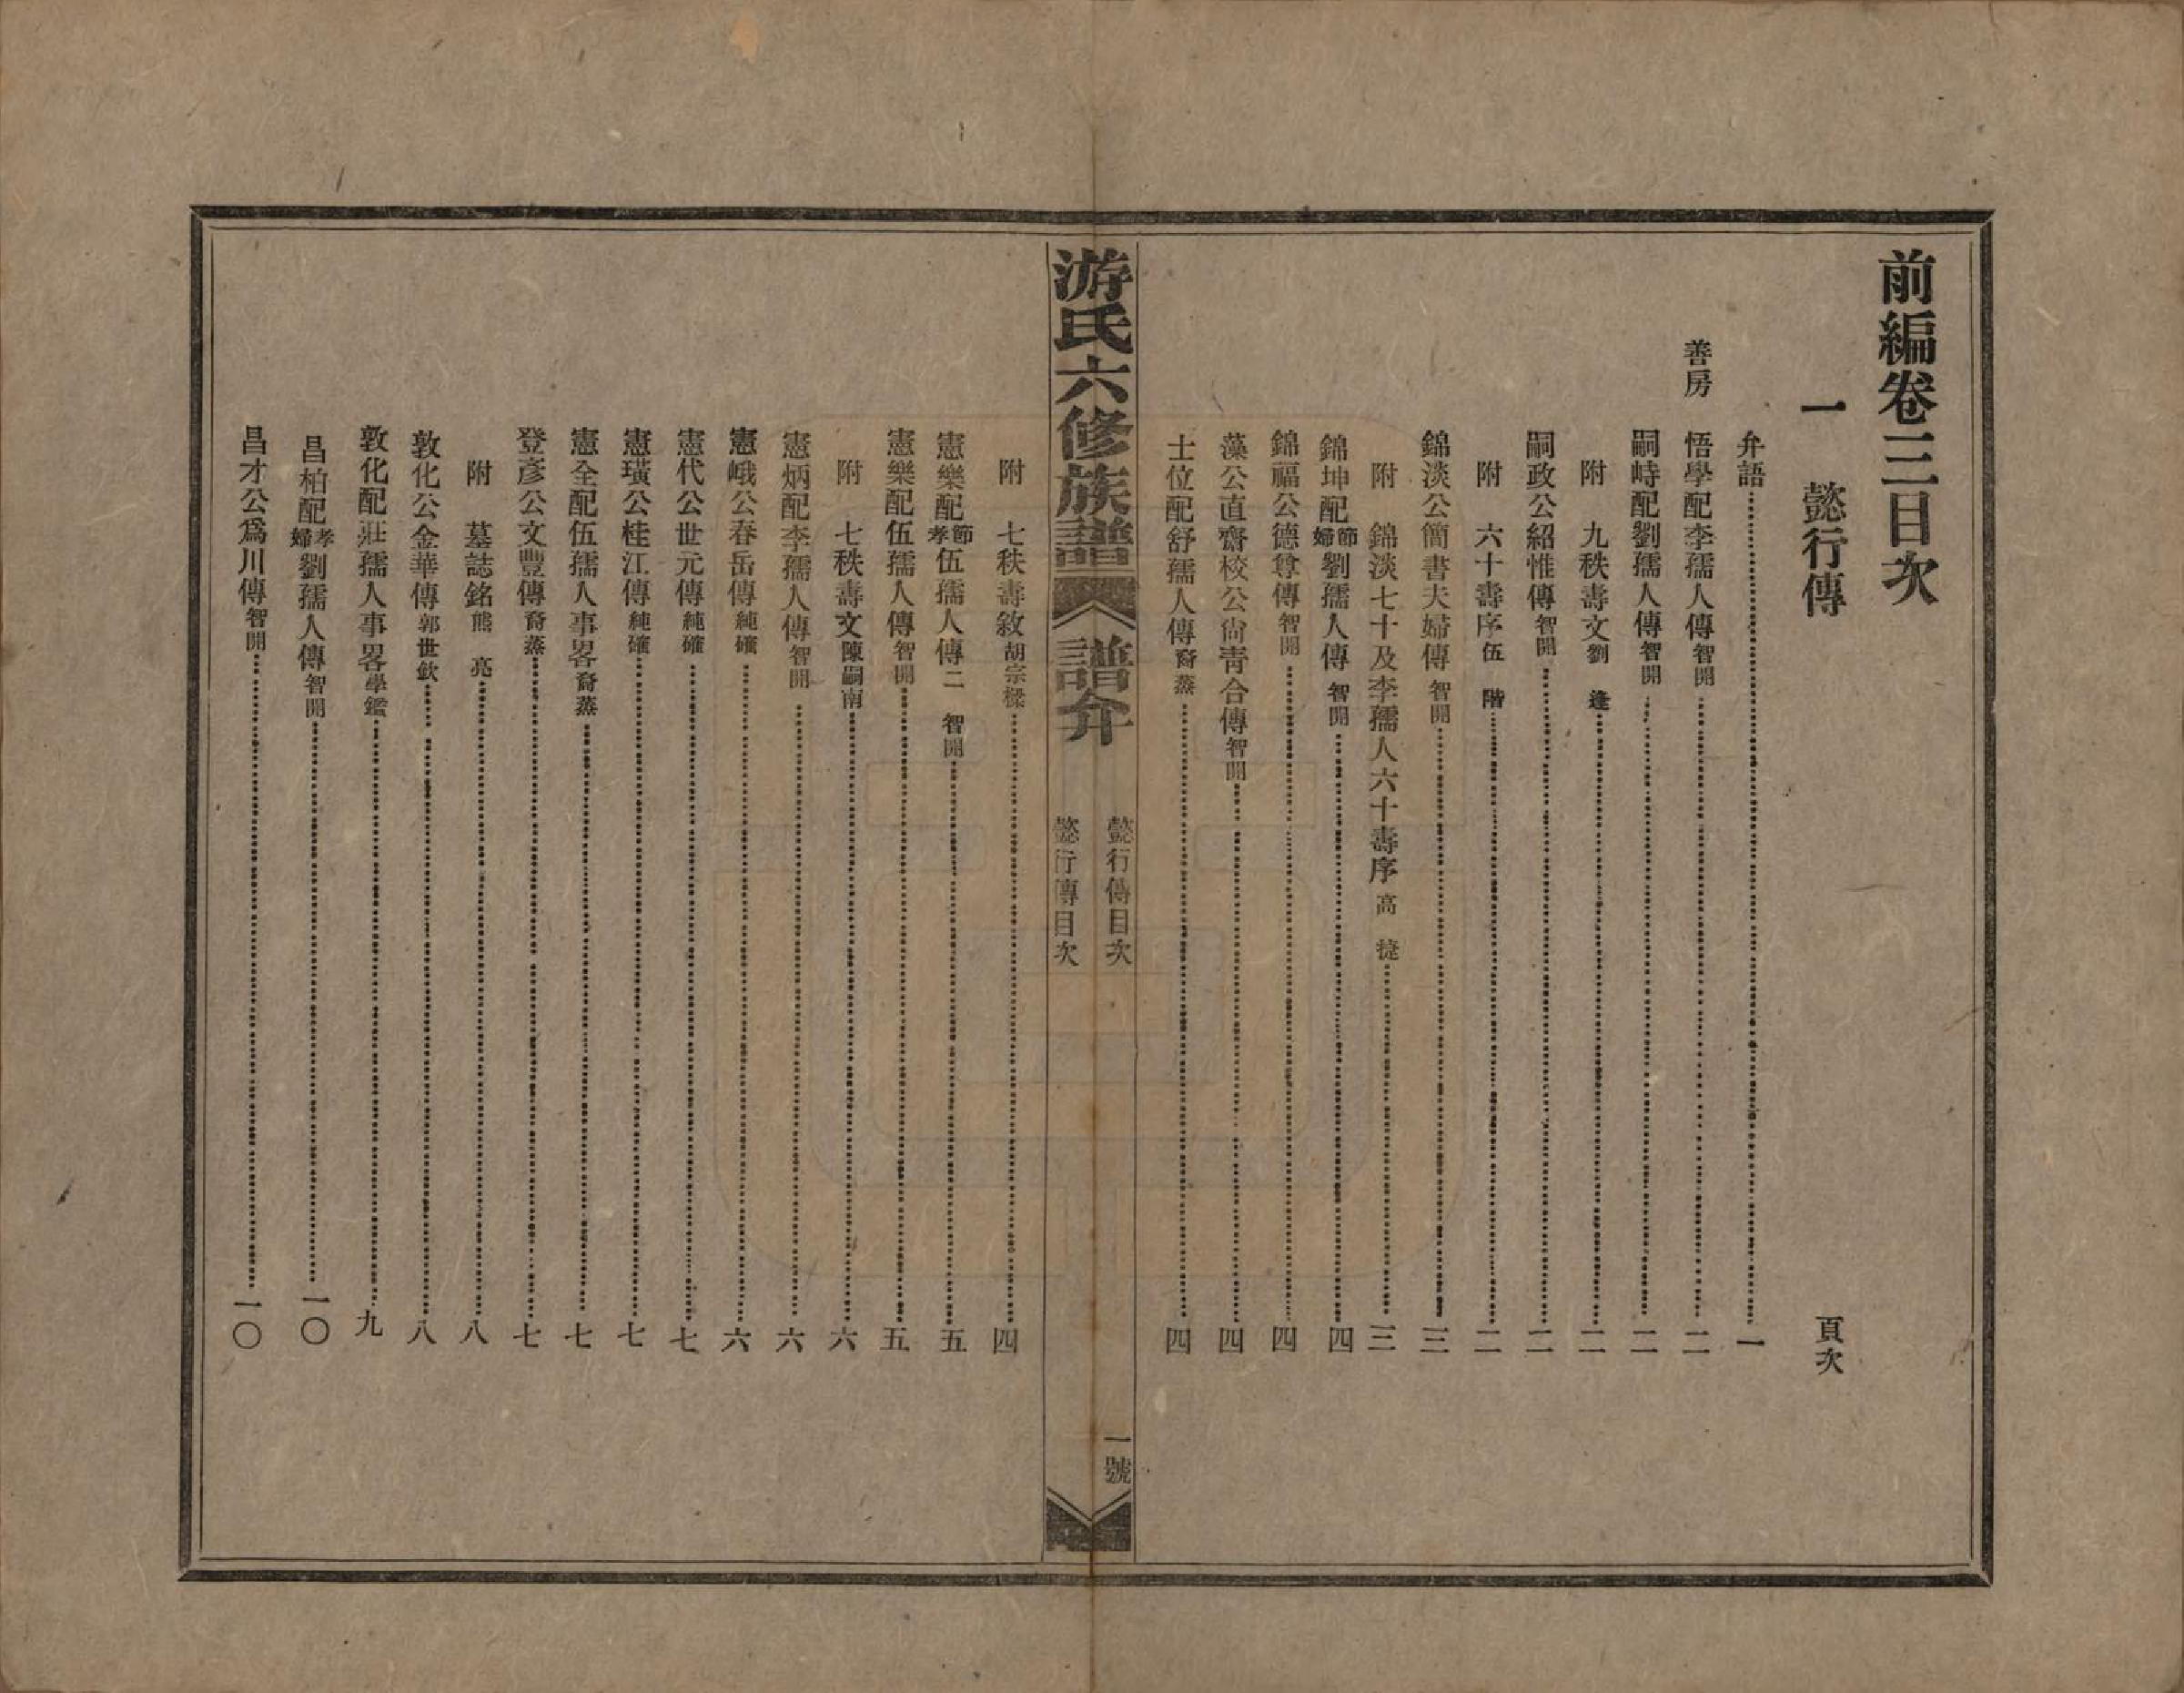 前編卷三目次
一　懿行傳　頁次
弁語……一
善房　悟學配李孺人傳智開……二
嗣峙配劉孺人傳智開……二
附　九秩壽文劉　逢……二
嗣政公紹惟傳智開……二
附　六十壽序伍　階……二
錦淡公簡書夫婦傳智開……三
附　錦淡七十及李孺人六十壽序高　捷……三
錦坤配節婦劉孺人傳智開……四
錦福公德尊傳智開……四
藻公直齋校公尙靑合傳智開……四
士位配舒孺人傳裔蒸……四
游氏六修族譜　譜弁　懿行傳目次　懿行傳目次　一號
附　七秩壽敘胡宗樑……四
憲樂配節孝伍孺人傳二　智開……五
憲樂配伍孺人傳智開……五
附　七秩壽文陳嗣南……六
憲炳配李孺人傳智開……六
憲峨公春岳傳純礭……六
憲代公世元傳純礭……七
憲璜公桂江傳純礭……七
憲全配伍孺人事畧裔蒸……七
登彥公文豐傳裔蒸……七
附　墓誌銘熊　亮……八
敦化公金華傳郭世欽……八
敦化配莊孺人事畧學鑑……九
昌柏配孝婦劉孺人傳智開……一〇
昌才公爲川傳智開……一〇